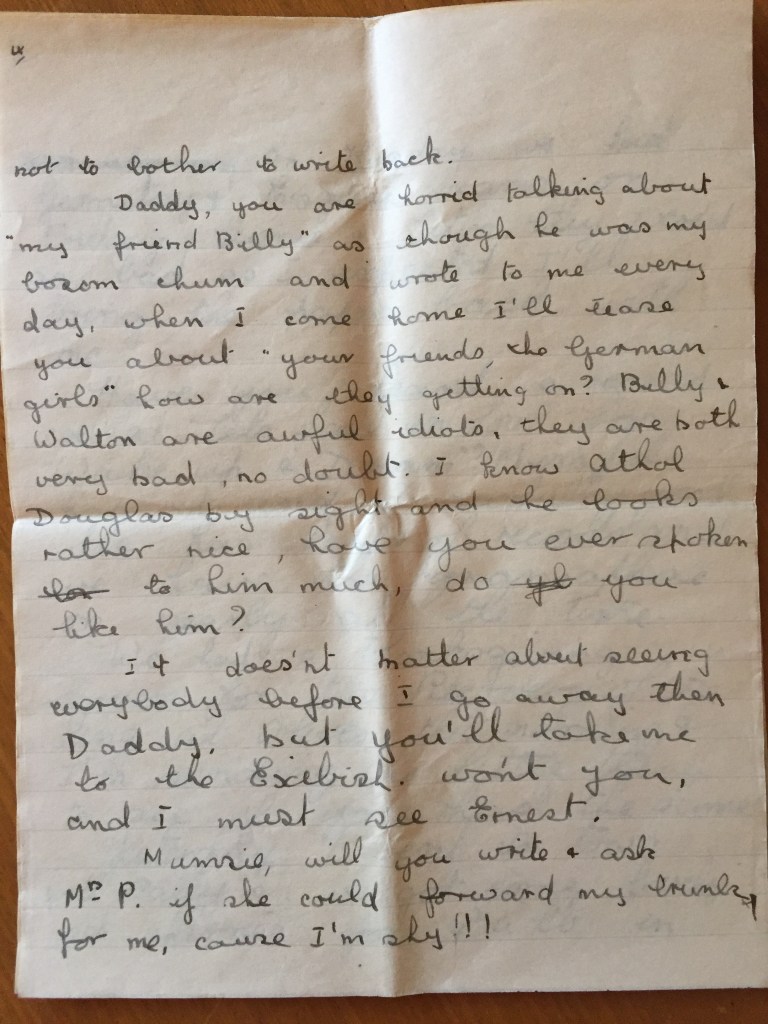 4/
not to bother to write back.
Daddy, you are horrid talking about
"my friend Billy" as though he was my
bozom chum and wrote to me every
day, when I come home I'll tease
you about "your friends, the German
girls" how are they getting on? Billy &
Walton are awful idiots, they are both
very bad, no doubt. I know Athol
Douglas by sight and he looks
rather nice, have you ever spoken
to him much, do you
like him?
It does'nt matter about seeing
everybody before I go away then
Daddy, but you'll take me
to the Exibish. won't you,
and I must see Ernest.
Mumsie, will you write & ask
Mrs P. if she could forward my trunk
for me, cause I'm shy!!!